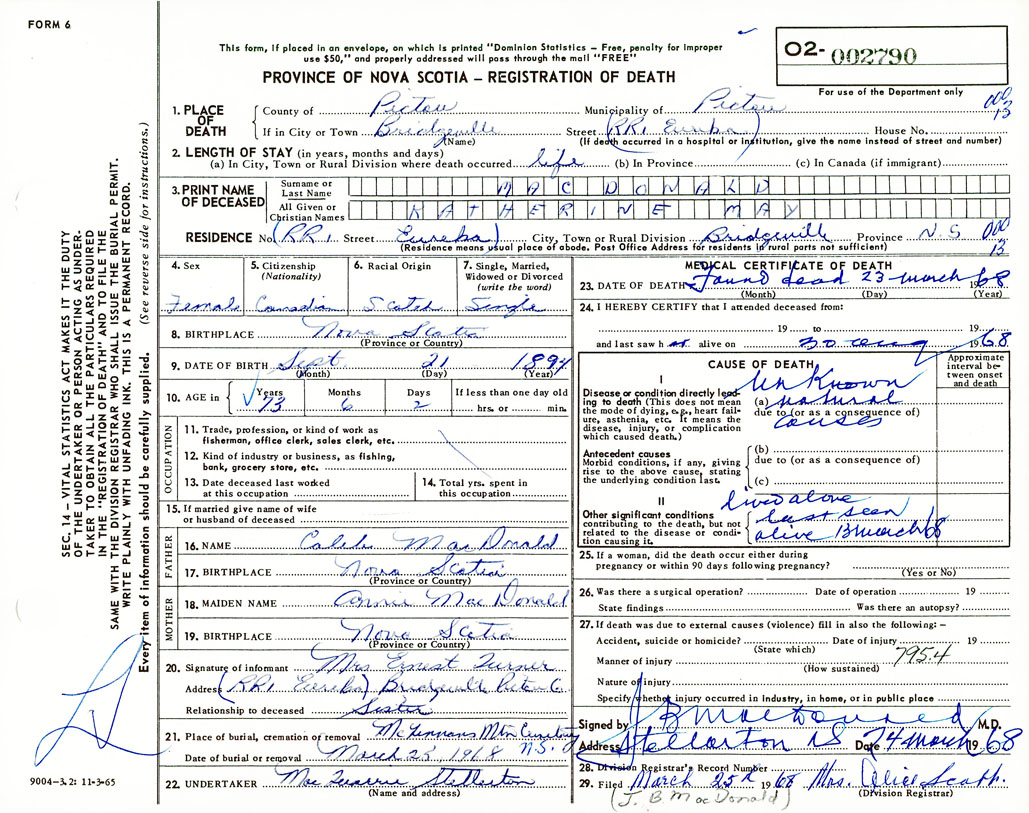 FORM 6
This form, if placed in an envelope, on which is printed "Dominion Statistics – Free, penalty for improper
use $50," and properly addressed will pass through the mail "FREE"
PROVINCE OF NOVA SCOTIA – REGISTRATION OF DEATH
02- 002790
For use of the Department only
SEC. 14 – VITAL STATISTICS ACT MAKES IT THE DUTY
OF THE UNDERTAKER OR PERSON ACTING AS UNDER-
TAKER TO OBTAIN ALL THE PARTICULARS REQUIRED
IN THE "REGISTRATION OF DEATH" AND TO FILE THE
SAME WITH THE DIVISION REGISTRAR WHO SHALL ISSUE THE BURIAL PERMIT.
WRITE PLAINLY WITH UNFADING INK. THIS IS A PERMANENT RECORD.
Every item of information should be carefully supplied. (See reverse side for instructions.)
1. PLACE OF DEATH County of Pictou Municipality of Pictou 000 13
If in City or Town Bridgeville Street (RR1 Eureka) House No.
(Name) (If death occurred in a hospital or institution, give the name instead of street and number)
2. LENGTH OF STAY (in years, months and days)
(a) In City, Town or Rural Division where death occurred life (b) In Province (c) In Canada (if immigrant)
3. PRINT NAME OF DECEASED Surname or Last Name MAC DONALD
All Given or Christian Names KATHERINE MAY
RESIDENCE No. (RR1 Street Eureka) City, Town or Rural Division Bridgeville Province N.S 000 13
(Residence means usual place of abode. Post Office Address for residents in rural parts not sufficient)
4. Sex 5. Citizenship (Nationality) 6. Racial Origin 7. Single, Married, Widowed or Divorced (write the word)
Female Canadian Scotch Single
8. BIRTHPLACE Nova Scotia
(Province or Country)
9. DATE OF BIRTH Sept. 21 1894
(Month) (Day) (Year)
10. AGE in Years Months Days If less than one day old
73 6 2 hrs. or min.
OCCUPATION
11. Trade, profession, or kind of work as
fisherman, office clerk, sales clerk, etc.
12. Kind of industry or business, as fishing,
bank, grocery store, etc.
13. Date deceased last worked
at this occupation
14. Total yrs. spent in
this occupation
15. If married give name of wife
or husband of deceased
FATHER
16. NAME Caleb MacDonald
17. BIRTHPLACE Nova Scotia
(Province or Country)
MOTHER
18. MAIDEN NAME Annie MacDonald
19. BIRTHPLACE Nova Scotia
(Province or Country)
20. Signature of informant Mrs Ernest Turner
Address (RR1 Eureka) Bridgeville Pictou Co
Relationship to deceased Sister
21. Place of burial, cremation or removal Mtn Cemetery N.S.
Date of burial or removal March 25 1968
22. UNDERTAKER Stellarton
(Name and address)
MEDICAL CERTIFICATE OF DEATH
23. DATE OF DEATH Found dead 23 march 1968
(Month) (Day) (Year)
24. I HEREBY CERTIFY that I attended deceased from:
19 to 19
and last saw h er alive on 30 1968
CAUSE OF DEATH
Approximate
interval be-
tween onset
and death
I
Disease or condition directly lead-
ing to death (This does not mean
the mode of dying, e.g., heart fail-
ure, asthenia, etc. It means the
disease, injury, or complication
which caused death.)
Unknown
(a) natural
due to (or as a consequence of)
causes
Antecedent causes
Morbid conditions, if any, giving
rise to the above cause, stating
the underlying condition last.
(b)
due to (or as a consequence of)
(c)
II
Other significant conditions
contributing to the death, but not
related to the disease or condi-
tion causing it.
lived alone
last seen
alive 13 march 68
25. If a woman, did the death occur either during
pregnancy or within 90 days following pregnancy?
(Yes or No)
26. Was there a surgical operation? Date of operation 19
State findings Was there an autopsy?
27. If death was due to external causes (violence) fill in also the following: –
Accident, suicide or homicide? Date of injury 19
(State which) 795.4
Manner of injury
(How sustained)
Nature of injury
Specify whether injury occurred in industry, in home, or in public place
Signed by J B M.D.
Address Stellarton NS Date 24 March 1968
28. Division Registrar's Record Number
29. Filed March 25th 1968 Mrs. Alice Scott
(J. B. MacDonald) (Division Registrar)
9004–3.2: 11-3-65